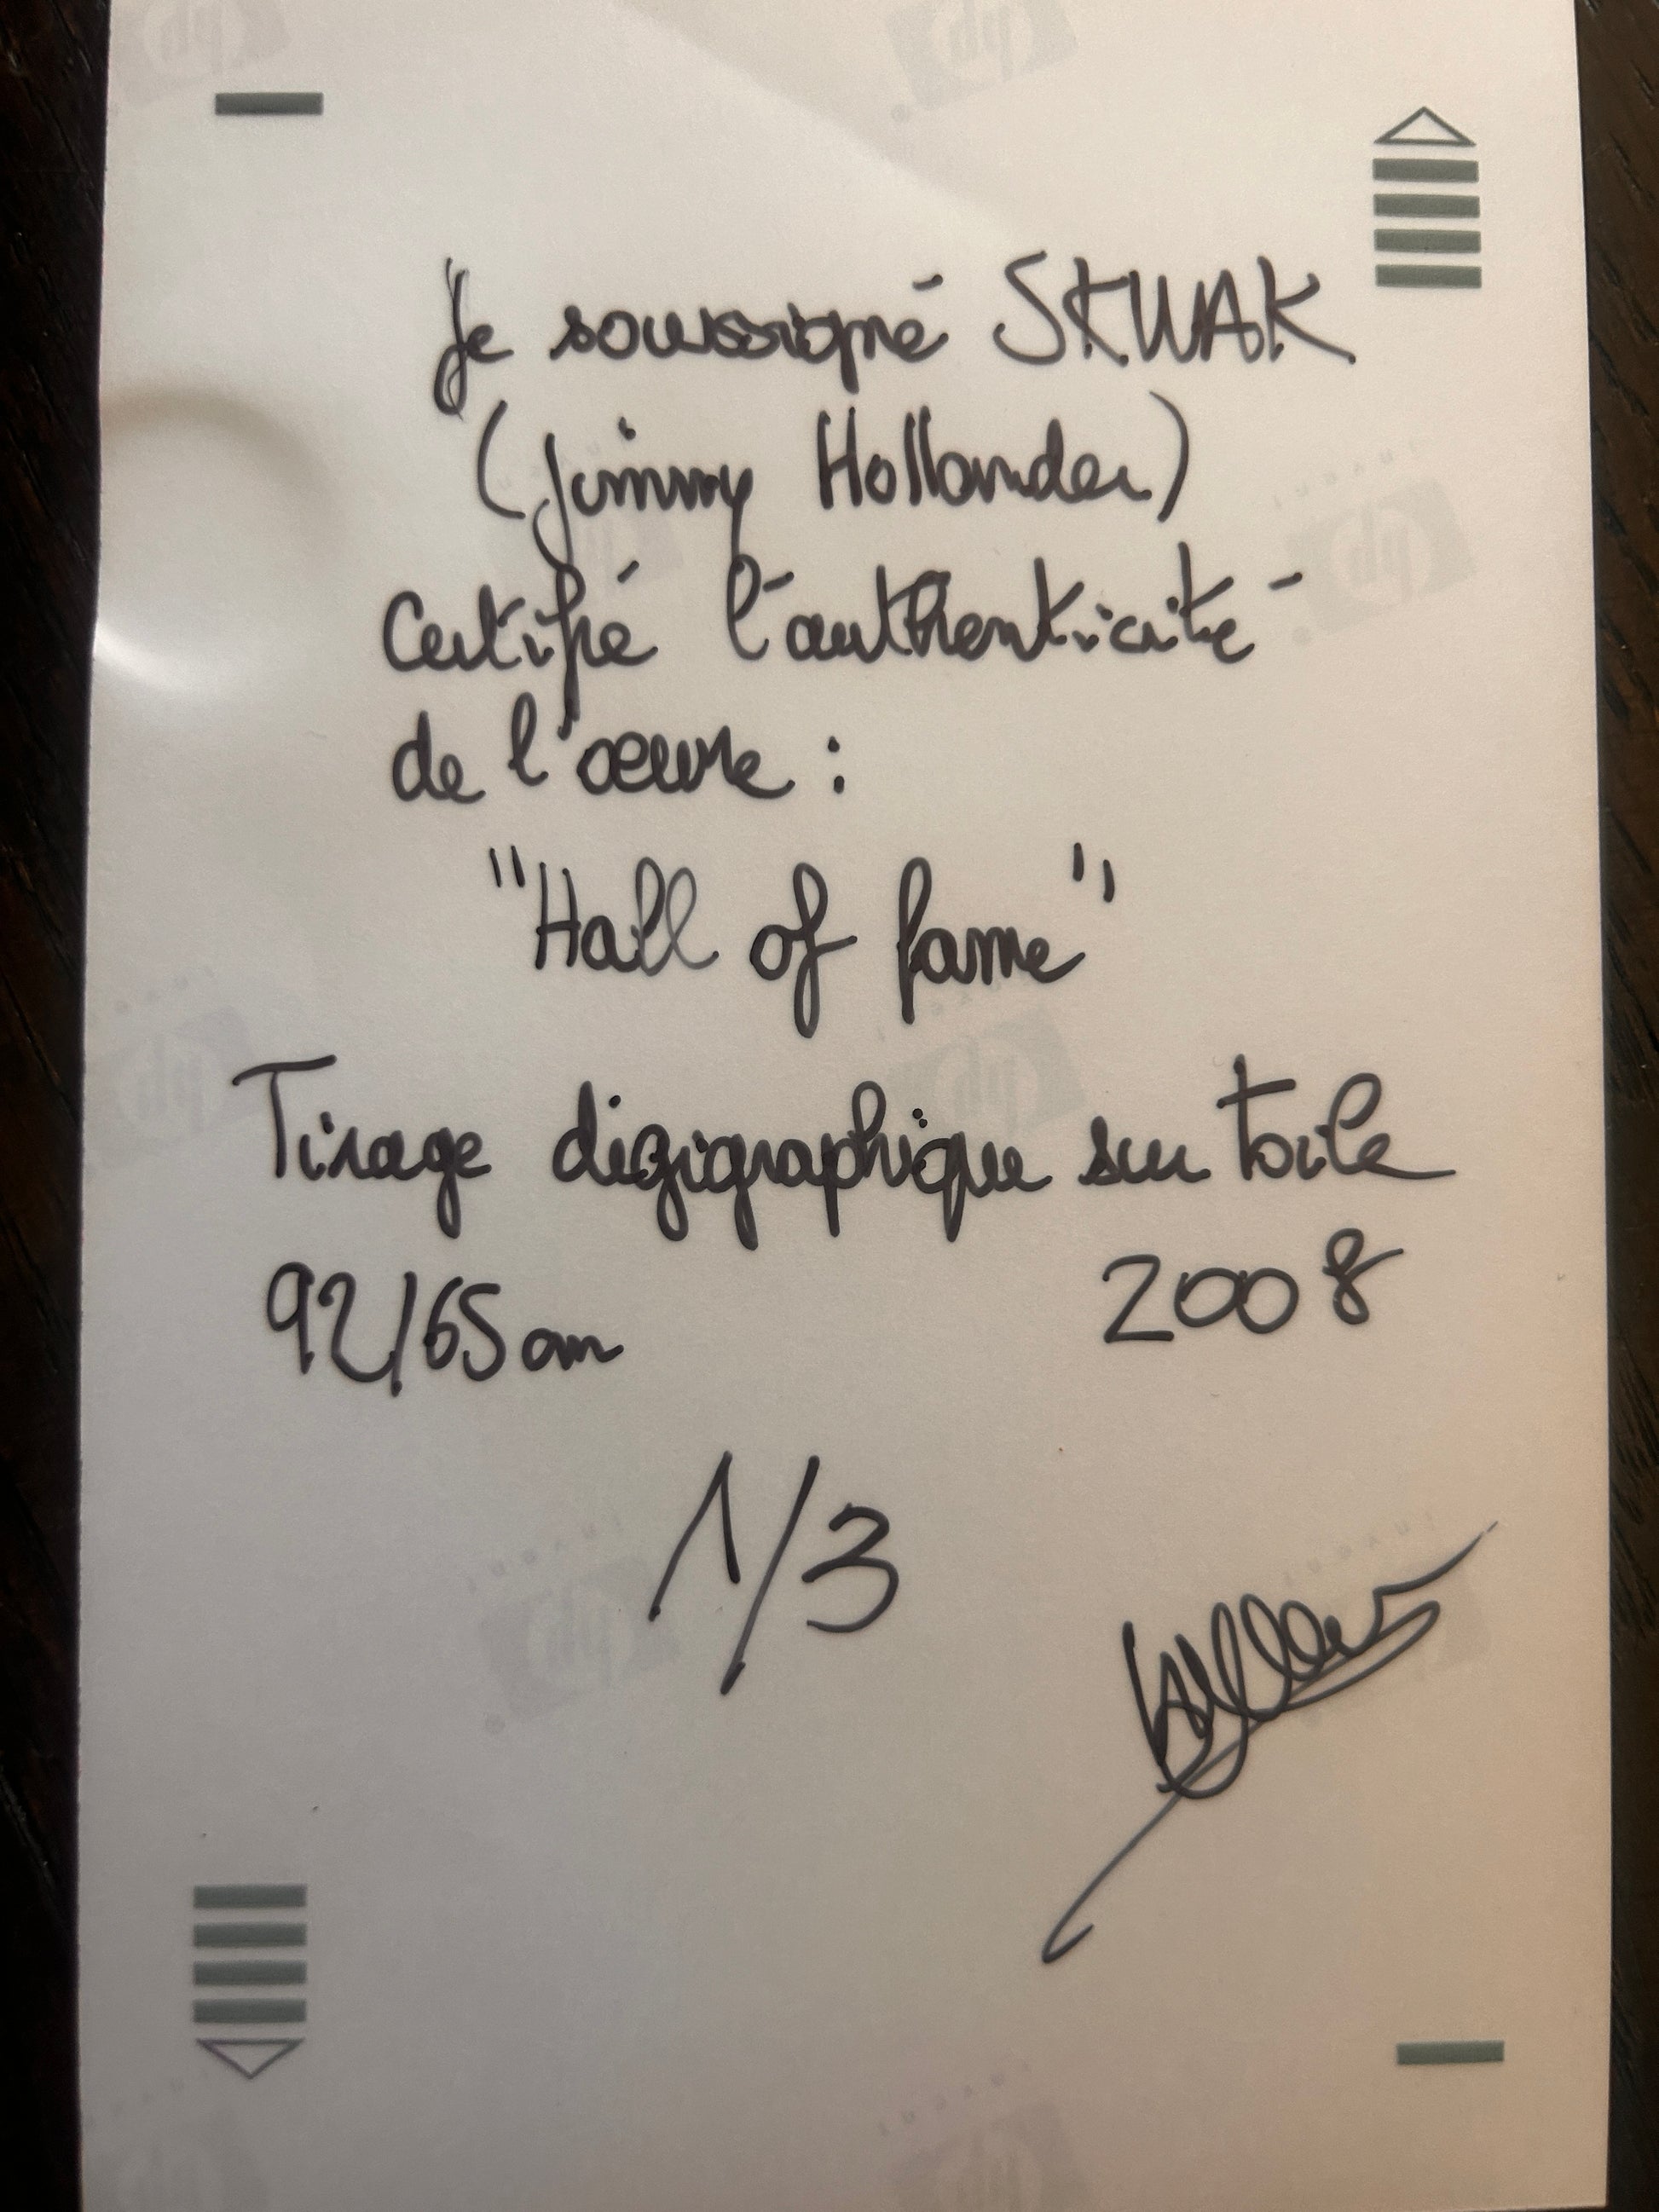 Je soussigné SKWAK
(Jimmy Hollander)
Certifié l'authenticité
de l'œuvre :
"Hall of fame"
Tirage digigraphique sur toile
92/65cm 2008
1/3